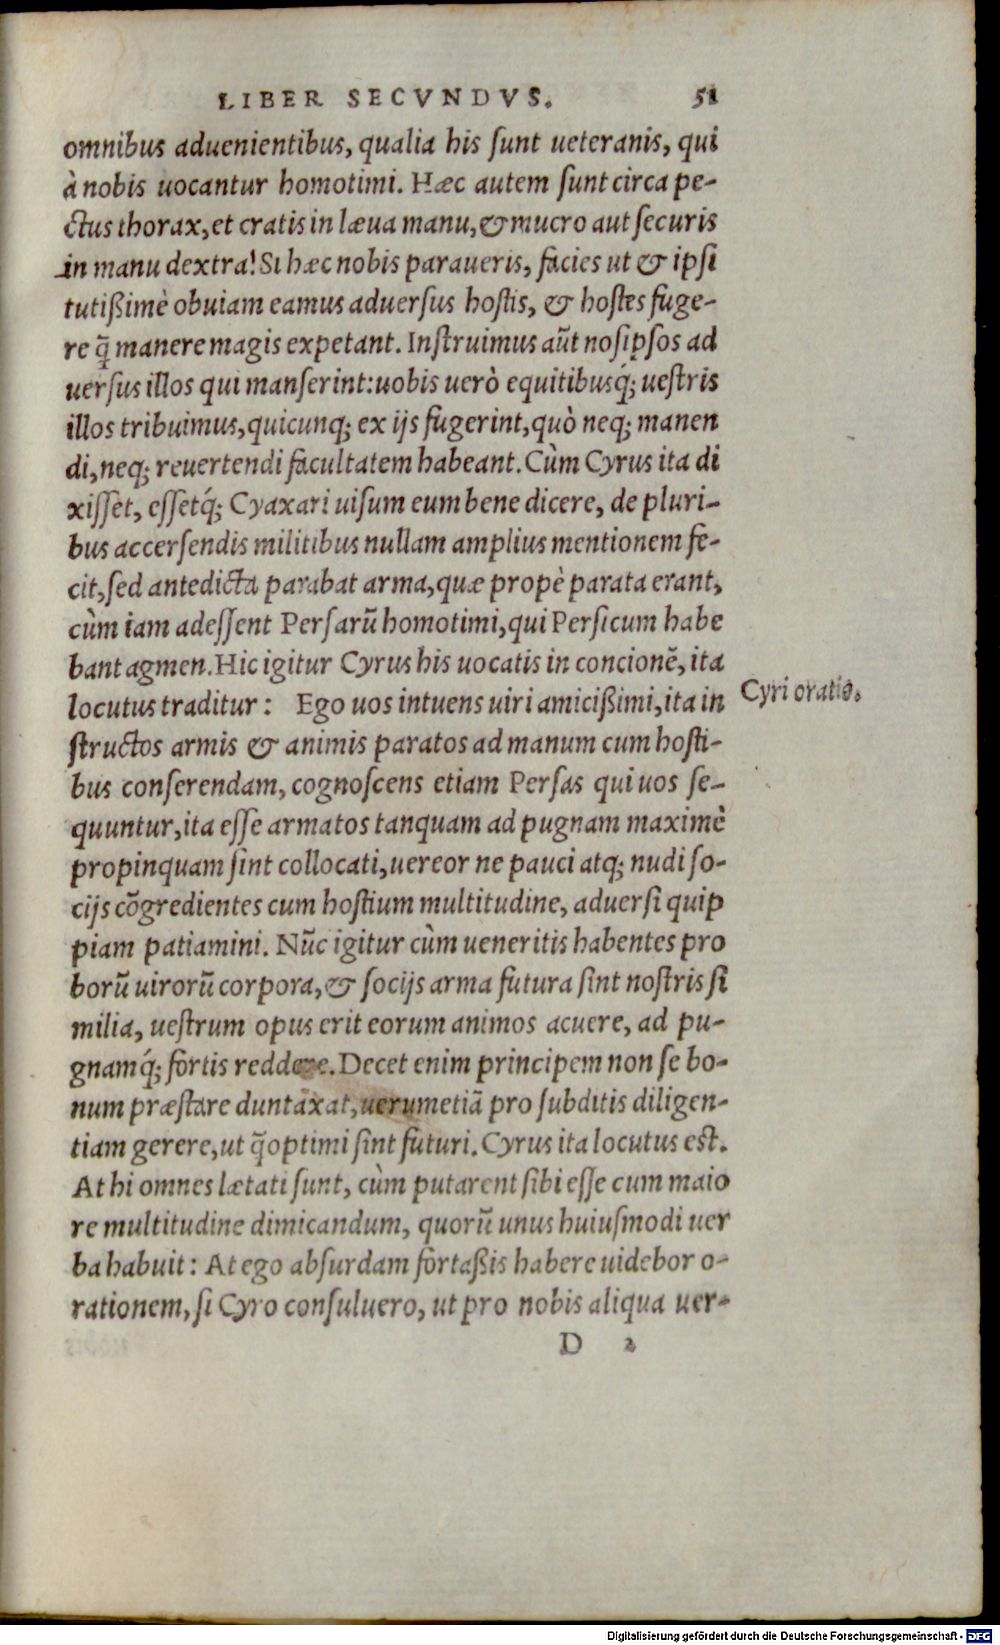 LIBER SECVNDVS. 51
omnibus aduenientibus, qualia his ſunt ueteranis, qui
à nobis uocantur homotimi. Hæc autem ſunt circa pe-
ctus thorax, et cratis in læua manu, & mucro aut ſecuris
in manu dextra! Si hæc nobis paraueris, facies ut & ipſi
tutißimè obuiam eamus aduerſus hoſtis, & hoſtes fuge-
re q̃ manere magis expetant. Inſtruimus aũt noſipſos ad
uerſus illos qui manſerint: uobis uerò equitibusq́; ueſtris
illos tribuimus, quicunq; ex ijs fugerint, quò neq; manen
di, neq; reuertendi facultatem habeant. Cùm Cyrus ita di
xiſſet, eſſetq́; Cyaxari uiſum eum bene dicere, de pluri-
bus accerſendis militibus nullam amplius mentionem fe-
cit, ſed antedicta parabat arma, quæ propè parata erant,
cùm iam adeſſent Perſarũ homotimi, qui Perſicum habe
bant agmen. Hic igitur Cyrus his uocatis in concionẽ, ita
locutus traditur: Ego uos intuens uiri amicißimi, ita in
Cyri oratio.
ſtructos armis & animis paratos ad manum cum hoſti-
bus conſerendam, cognoſcens etiam Perſas qui uos ſe-
quuntur, ita eſſe armatos tanquam ad pugnam maximè
propinquam ſint collocati, uereor ne pauci atq; nudi ſo-
cijs cõgredientes cum hoſtium multitudine, aduerſi quip
piam patiamini. Nũc igitur cùm ueneritis habentes pro
borũ uirorũ corpora, & ſocijs arma futura ſint noſtris ſi
milia, ueſtrum opus erit eorum animos acuere, ad pu-
gnamq́; fortis reddere. Decet enim principem non ſe bo-
num præſtare duntaxat, uerumetiã pro ſubditis diligen-
tiam gerere, ut q̃ optimi ſint futuri. Cyrus ita locutus eſt.
At hi omnes lætati ſunt, cùm putarent ſibi eſſe cum maio
re multitudine dimicandum, quorũ unus huiuſmodi uer
ba habuit: At ego abſurdam fortaßis habere uidebor o-
rationem, ſi Cyro conſuluero, ut pro nobis aliqua uer-
D 2
Digitalisierung gefördert durch die Deutsche Forschungsgemeinschaft - DFG